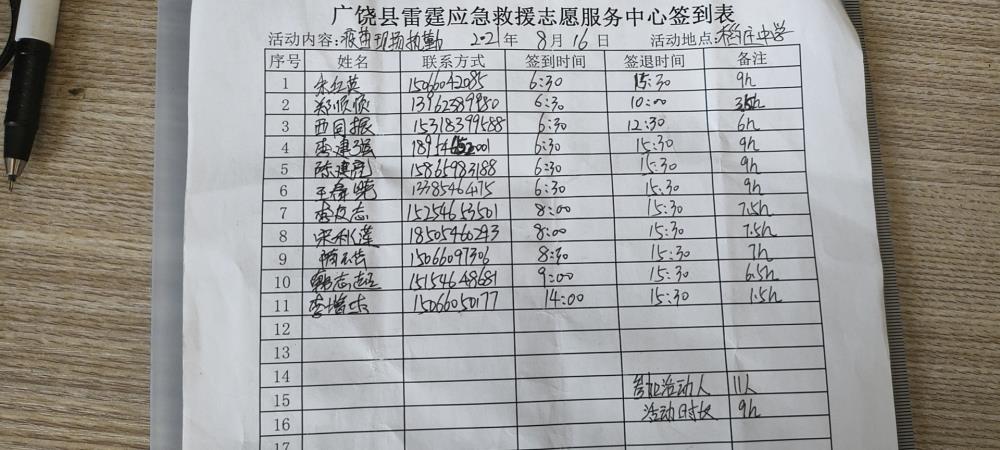 广饶县雷霆应急救援志愿服务中心签到表
活动内容:疫苗现场执勤 2021年 8月16日 活动地点:稻庄中学
序号 姓名 联系方式 签到时间 签退时间 备注
1 宋红英 15066042085 6:30 15:30 9h
2 郑顺顺 13962389980 6:30 10:00 3.5h
3 西国振 15318399588 6:30 12:30 6h
4 李建强 6:30 15:30 9h
5 陈建亮 15865983188 6:30 15:30 9h
6 13385464175 6:30 15:30 9h
7 李文志 15254653501 8:00 15:30 7.5h
8 宋利莲 18505460293 8:00 15:30 7.5h
9 15066097306 8:30 15:30 7h
10 郭志超 15154648681 9:00 15:30 6.5h
11 李增杰 15066050177 14:00 15:30 1.5h
12
13
14 参加活动人 11人
15 活动时长 9h
16
17